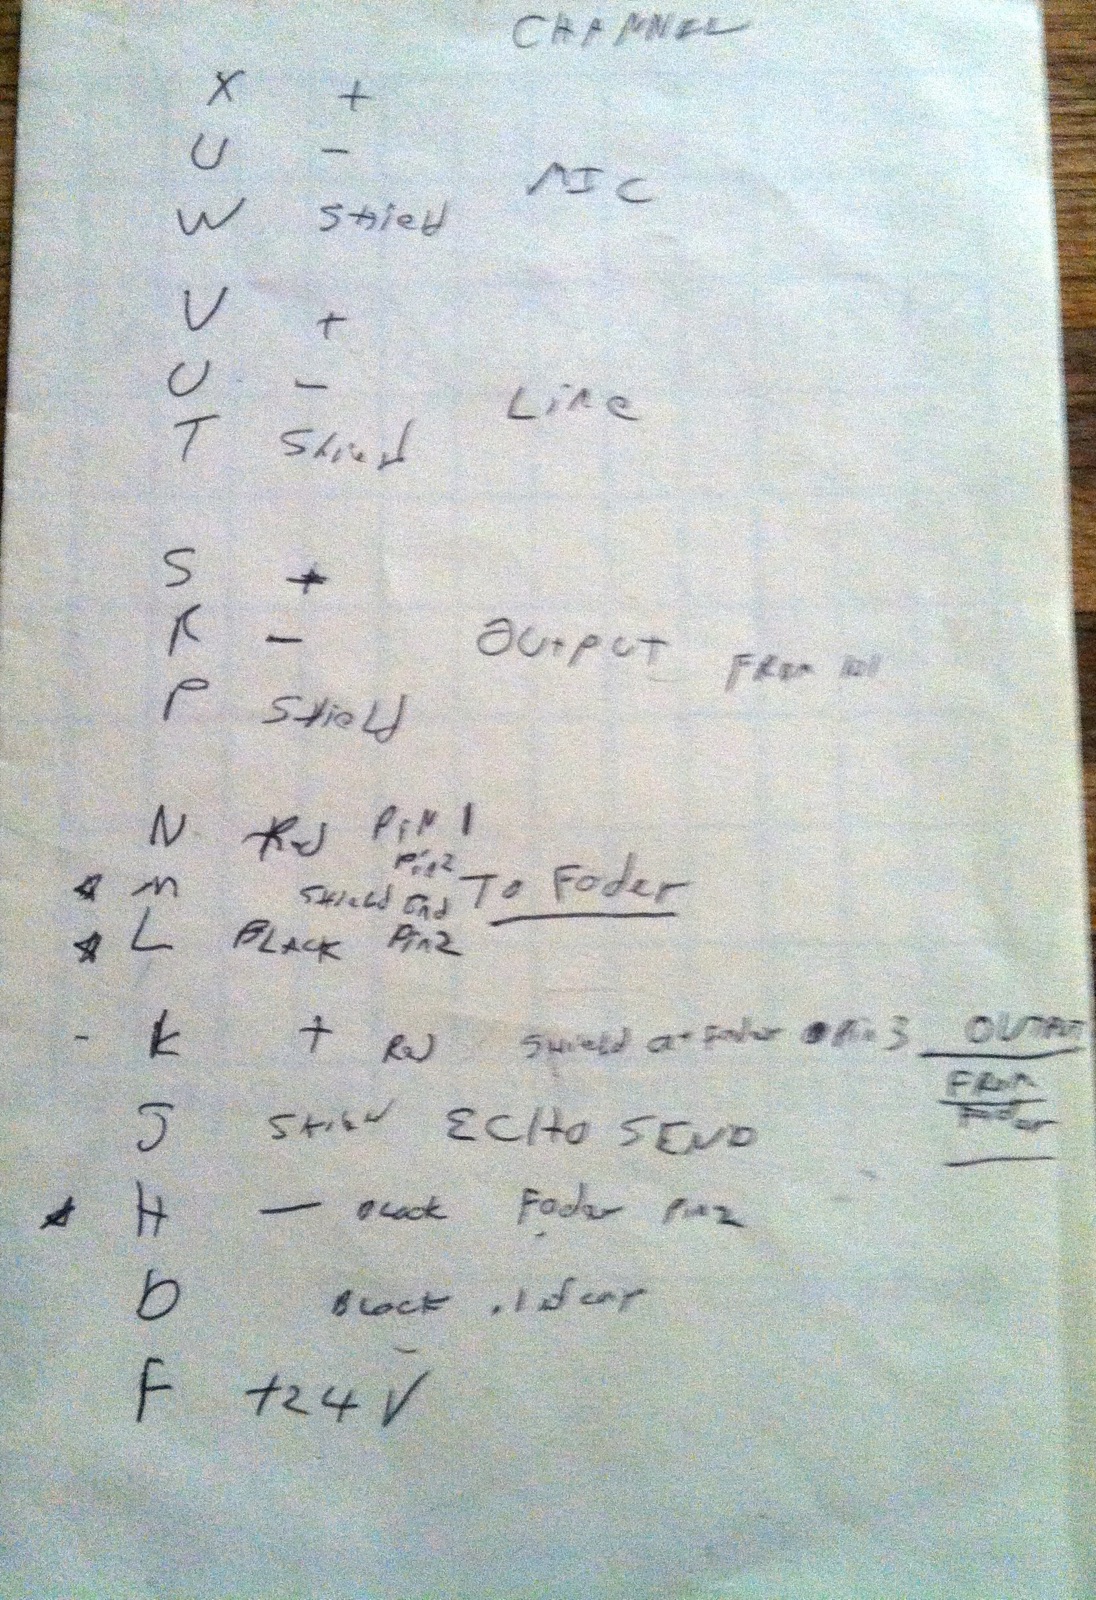 CHANNEL
X +
U -
MIC
W Shield
V +
U -
Line
T Shield
S +
R -
OUtPUT FROM
P Shield
N Red PiN 1
Pin2
M Shield To Fader
L BLACK Pin2
- K + Red Shield at Fader Pin 3 OUTPUT
FROM
Fader
J Shield ECHO SEND
H - Black Fader Pin2
D Black
F +24V